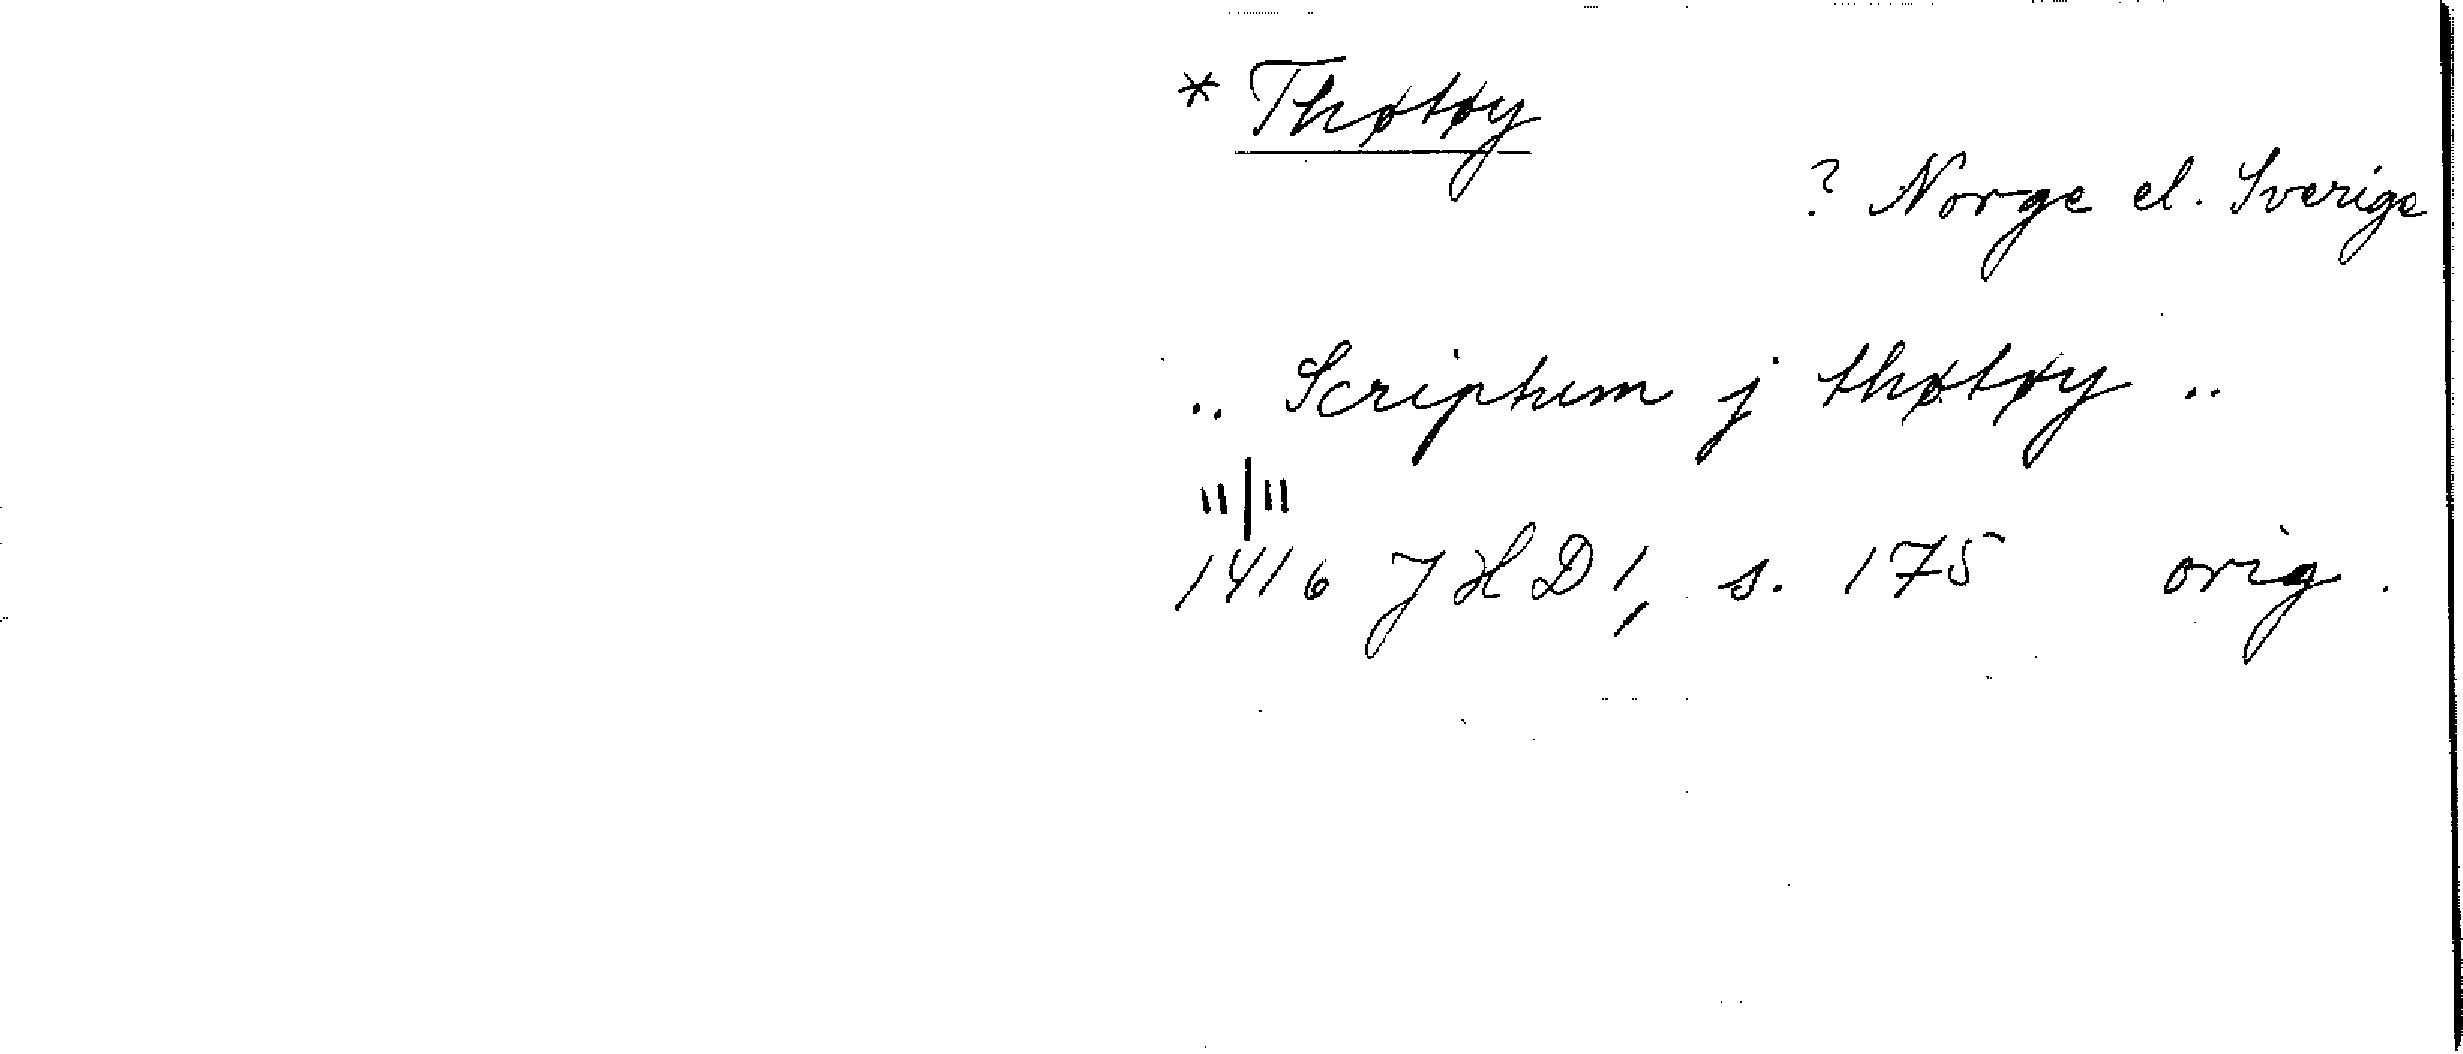 * Thøtøy
? Norge el. Sverige
.. Scriptum j thøtøy ..
11/11
1416 JHD1, s. 175 orig.